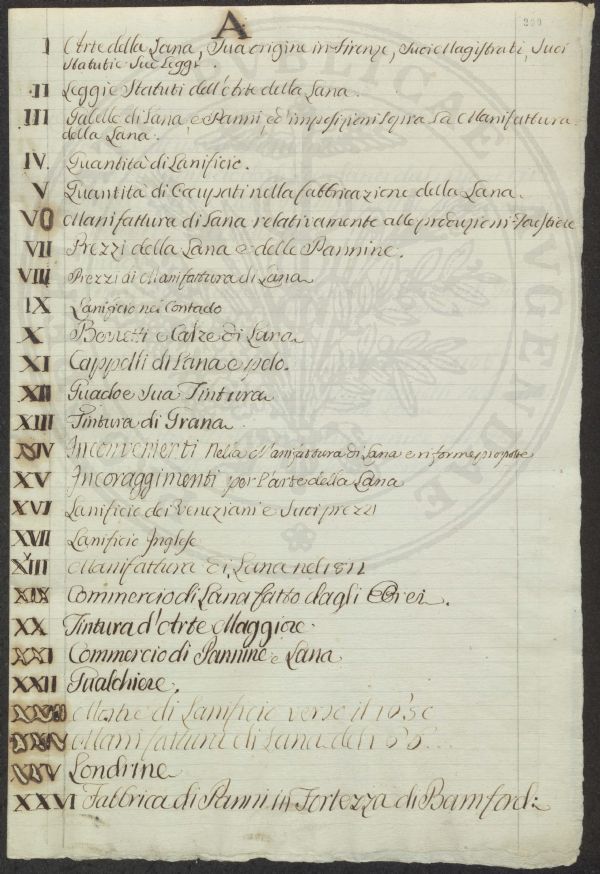 A
I Arte della Lana, Sua origine in Firenze, Suoi Magistrati, Suoi
Statuti e Sue Leggi.
II Leggi e Statuti dell'Arte della Lana.
III Gabelle di Lana, e Panni, ed imposizioni sopra La Manifattura
della Lana.
IV. Quantità di Lanificio.
V Quantità di Occupati nella fabbricazione della Lana.
VI Manifattura di Lana relativamente alle produzioni Forestiere
VII Prezzi della Lana e delle Pannine.
VIII Prezzi di Manifattura di Lana
IX Lanificio nel Contado
X Berretti e Calze di Lana
XI Cappelli di Lana e pelo.
XII Guado e sua Tintura
XIII Tintura di Grana.
XIV Inconvenienti nella Manifattura di Lana e riforme proposte
XV Incoraggimenti per l'arte della Lana
XVI Lanificio dei Veneziani e Suoi prezzi
XVII Lanificio Inglese
XVIII Manifattura di Lana nel 1811
XIX Commercio di Lana fatto dagli Ebrei.
XX Tintura d'Arte Maggiore.
XXI Commercio di Pannine e Lana
XXII Gualchiere.
XXIII Mostre di Lanificio verso il 1650
XXIV Manifatture di Lana del
XXV Londrine
XXVI Fabbrica di Panni in Fortezza di Bamford:
PVBLICAE AVGENDAE